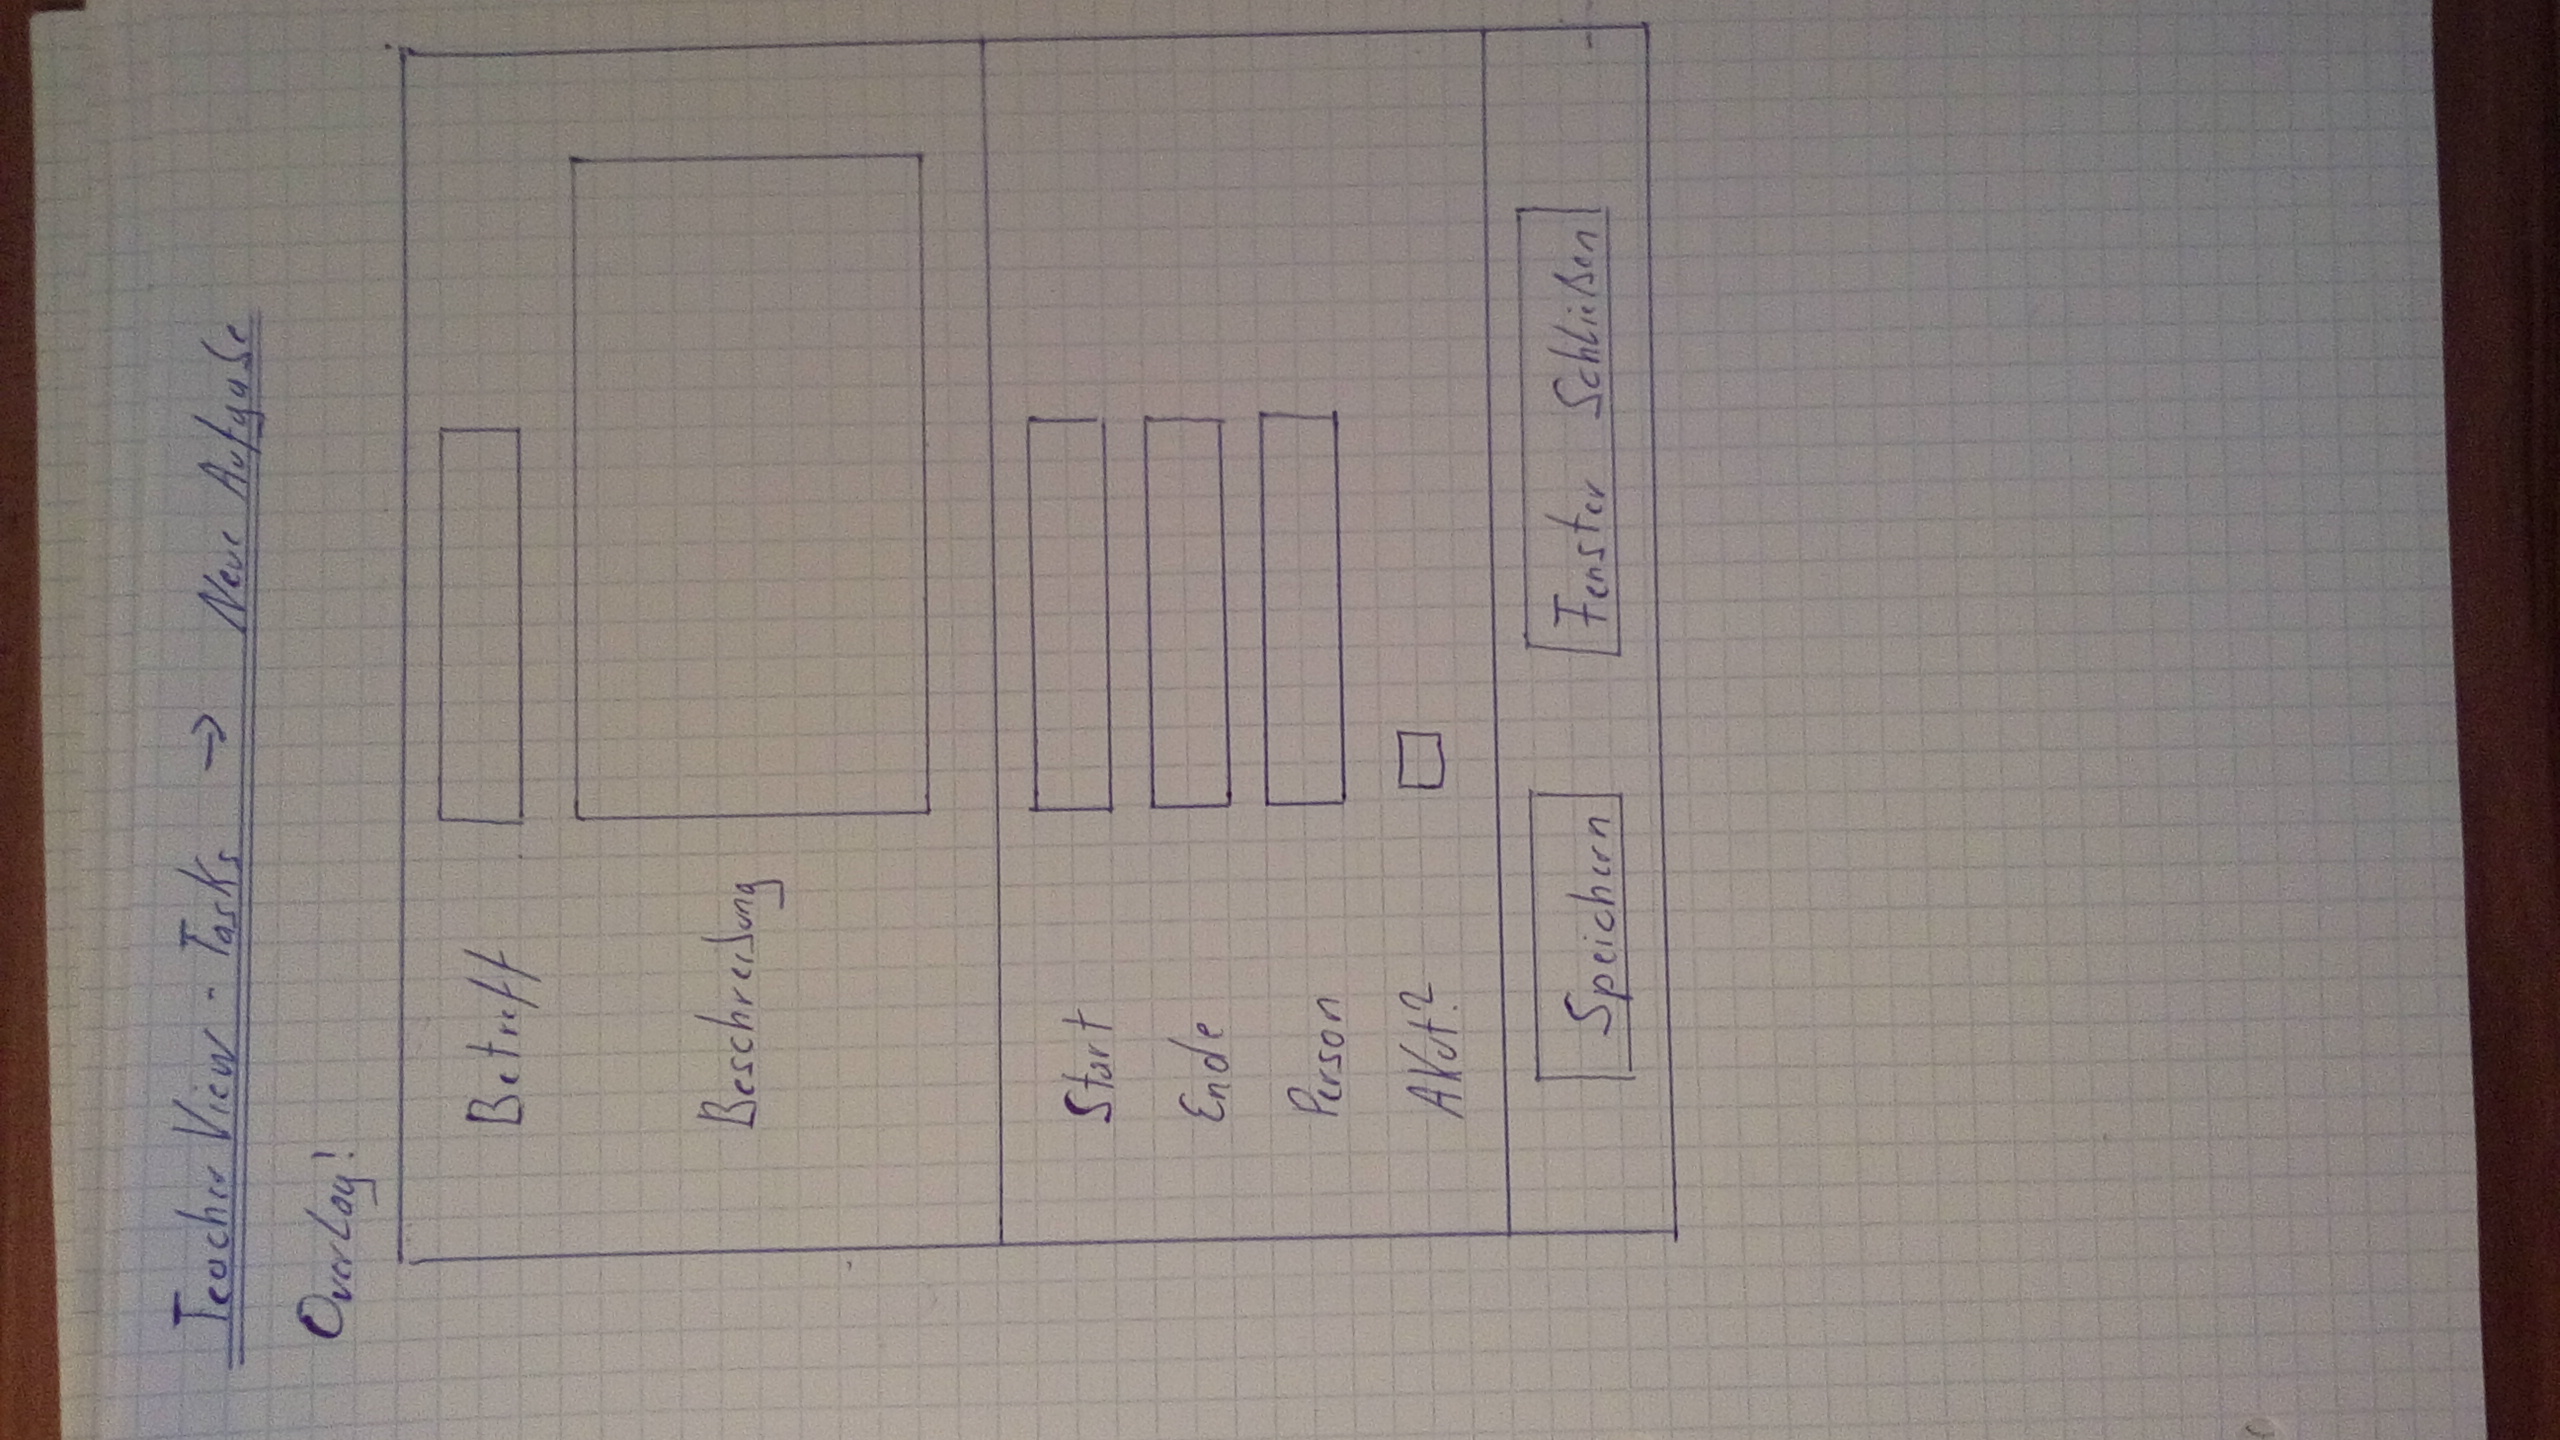 Teacher View - Tasks → Neue Aufgabe
Overlay!
Betreff
Beschreibung
Start
Ende
Person
Akut?
Speichern Fenster Schließen